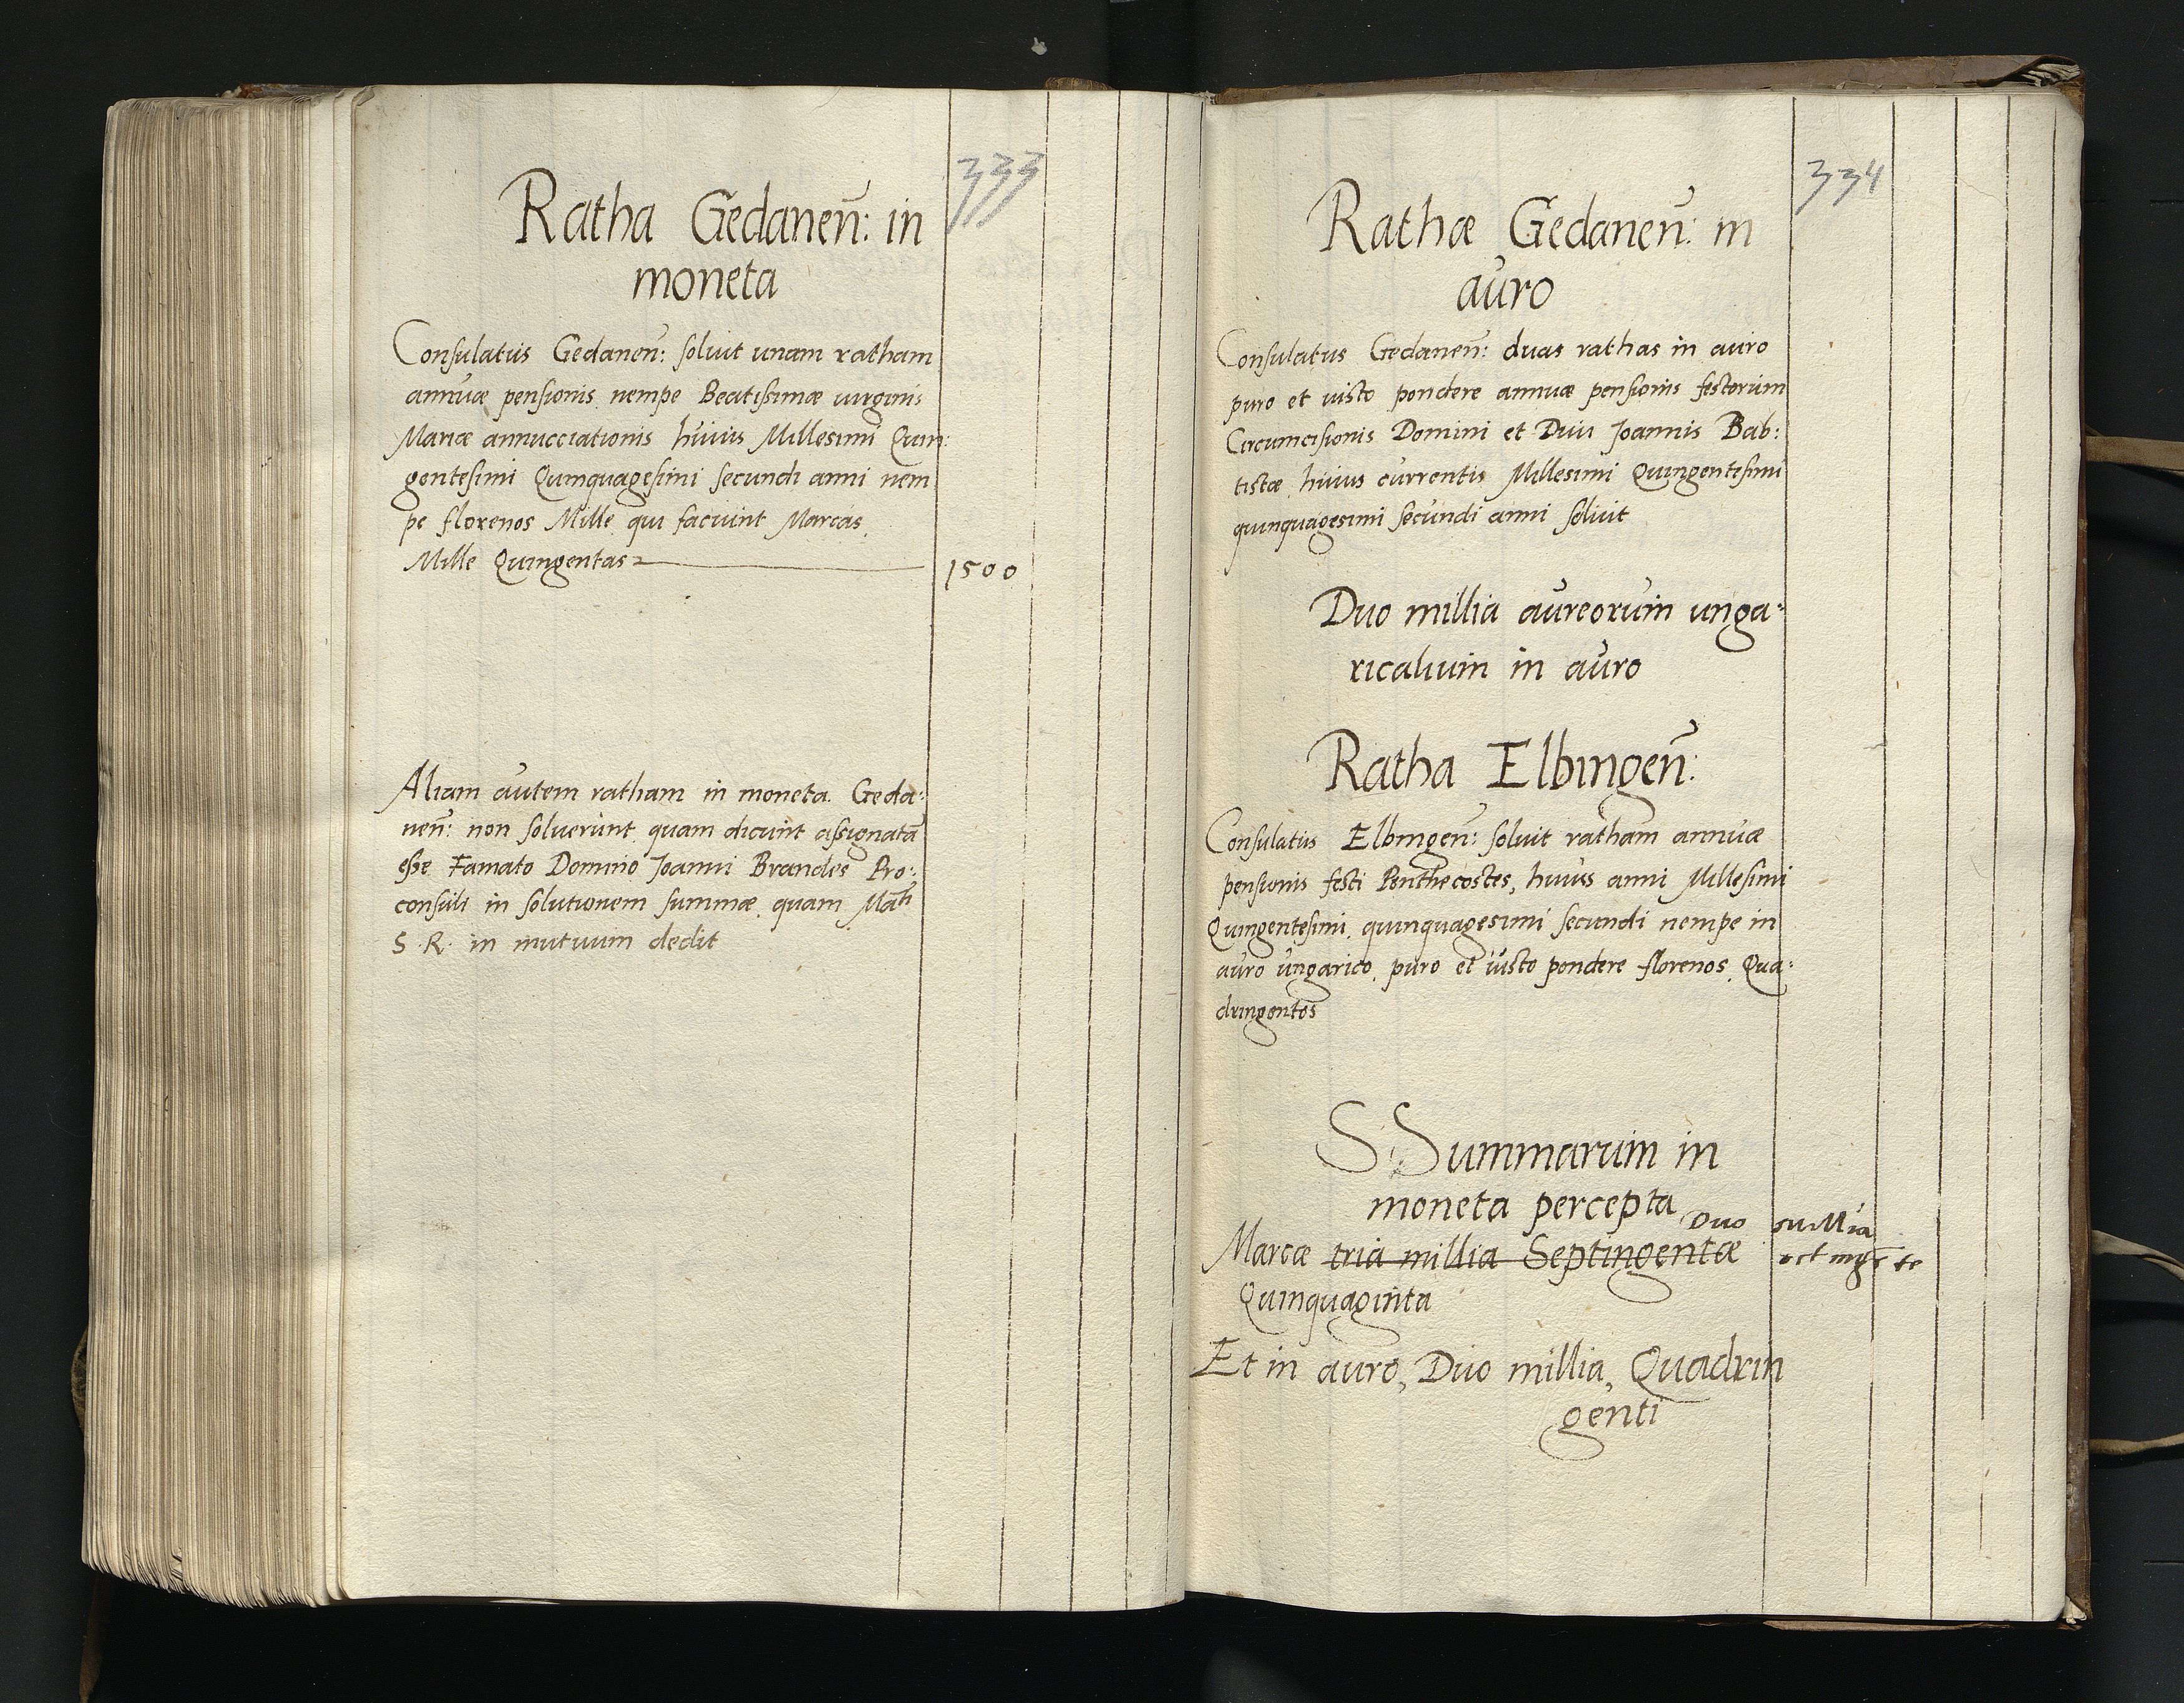 333
Ratha Gedaneñ: in
moneta
Consulatus Gedaneñ: soluit unam ratham
annuæ pensionis nempe Beatissimæ uirginis
Mariæ annucciationis huius Millesimi Quin:
gentesimi Quinquagesimi secundi anni nem
pe florenos Mille qui faciunt Marcas
Mille Quingentas 1500
Aliam autem ratham in moneta Geda:
neñ: non soluerunt quam dicunt assignatã
esse Famato Domino Joanni Brandes Pro:
consuli in solutionem summæ quam Mati
S. R. in mutuum dedit
334
Rathæ Gedaneñ: in
auro
Consulatus Gedaneñ: duas rathas in auro
puro et iusto pondere annuæ pensionis festorum
Circumcisionis Domini et Diui Joannis Bab:
tistæ huius currentis Millesimi Quingentesimi
quinquagesimi secundi anni soluit
Duo millia aureorum unga:
ricalium in auro
Ratha Elbingeñ:
Consulatus Elbingeñ: soluit ratham annuæ
pensionis festi Penthecostes, huius anni Millesimi
Quingentesimi quinquagesimi secundi nempe in
auro ungarico puro et iusto pondere florenos Qua:
dringentos
S. Summarum in
moneta percepta
Duo millia
Marcæ tria millia Septingentæ octingẽte
Quinquaginta
Et in auro, Duo millia, Quadrin
genti